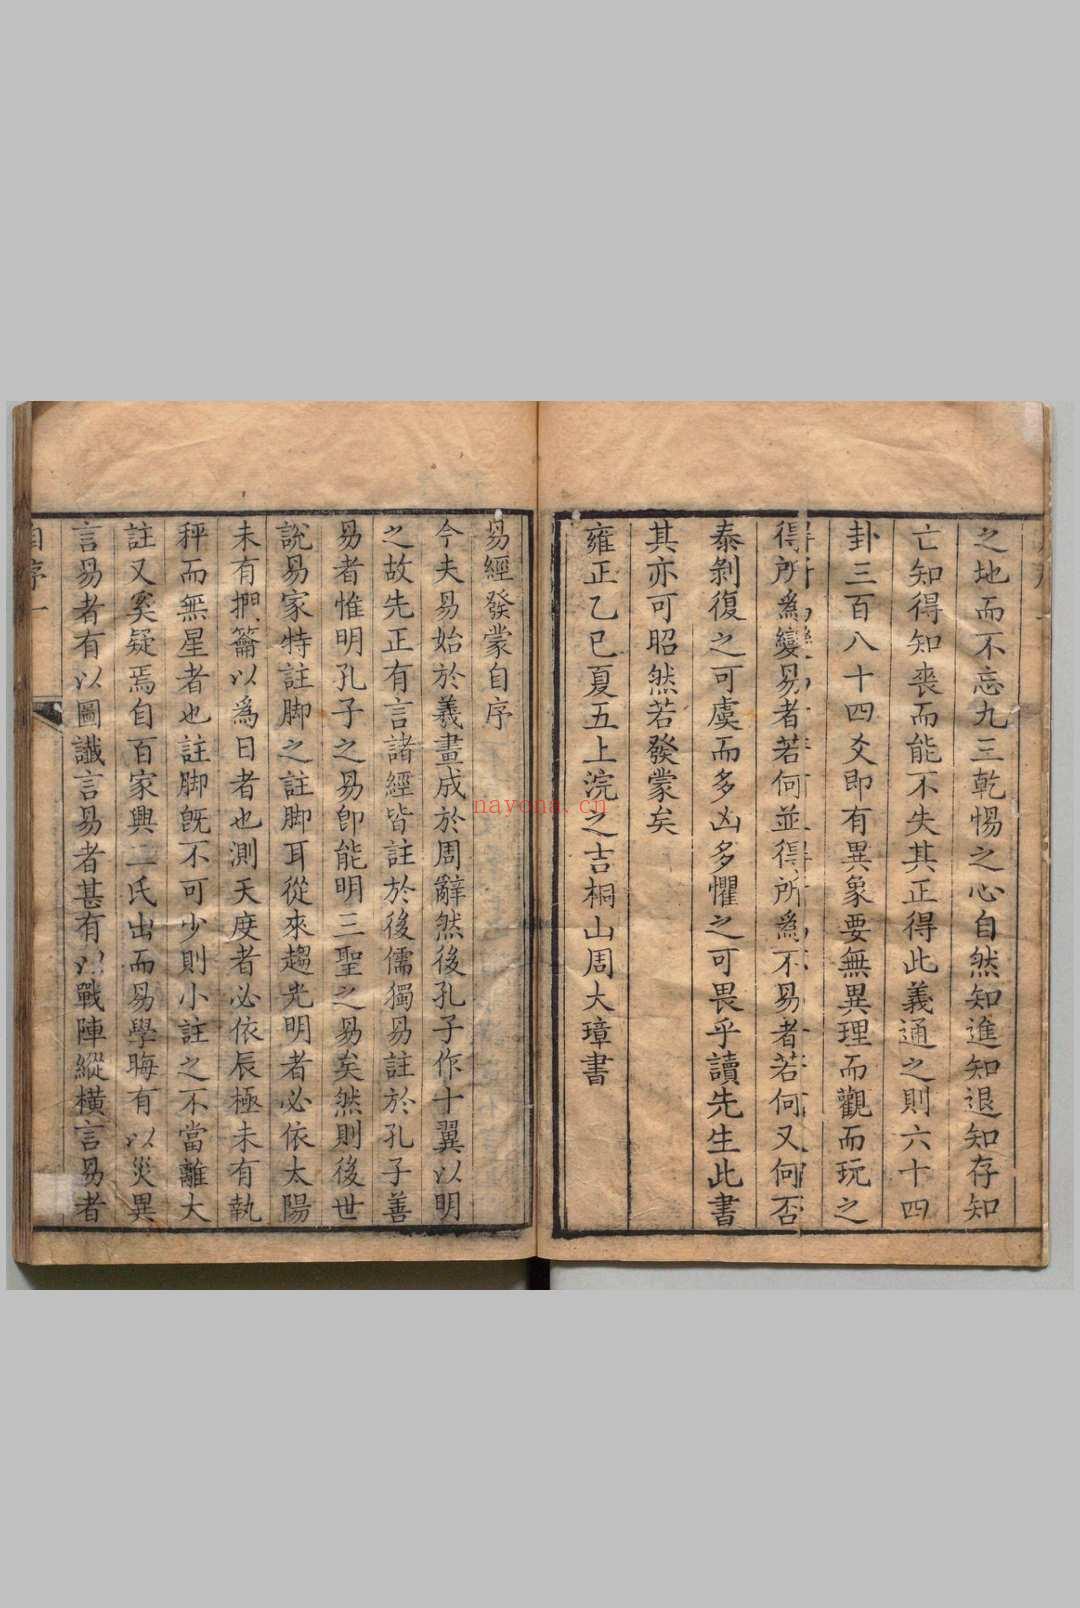 之地而不忘九三乾惕之心自然知進知退知存知
亡知得知喪而能不失其正得此義通之則六十四
卦三百八十四爻即有異象要無異理而觀而玩之
得所爲變易者若何並得所爲不易者若何又何否
泰剝復之可虞而多凶多懼之可畏乎讀先生此書
其亦可昭然若發蒙矣
雍正乙巳夏五上浣之吉桐山周大璋書
易經發蒙自序
今夫易始於羲畫成於周辭然後孔子作十翼以明
之故先正有言諸經皆註於後儒獨易註於孔子善
易者惟明孔子之易卽能明三聖之易矣然則後世
說易家特註脚之註脚耳從來趨光明者必依太陽
未有捫籥以爲日者也測天度者必依辰極未有執
秤而無星者也註脚旣不可少則小註之不當離大
註又奚疑焉自百家興二氏出而易學晦有以災異
言易者有以圖讖言易者甚有以戰陣縱橫言易者
自序一
nayona.cn